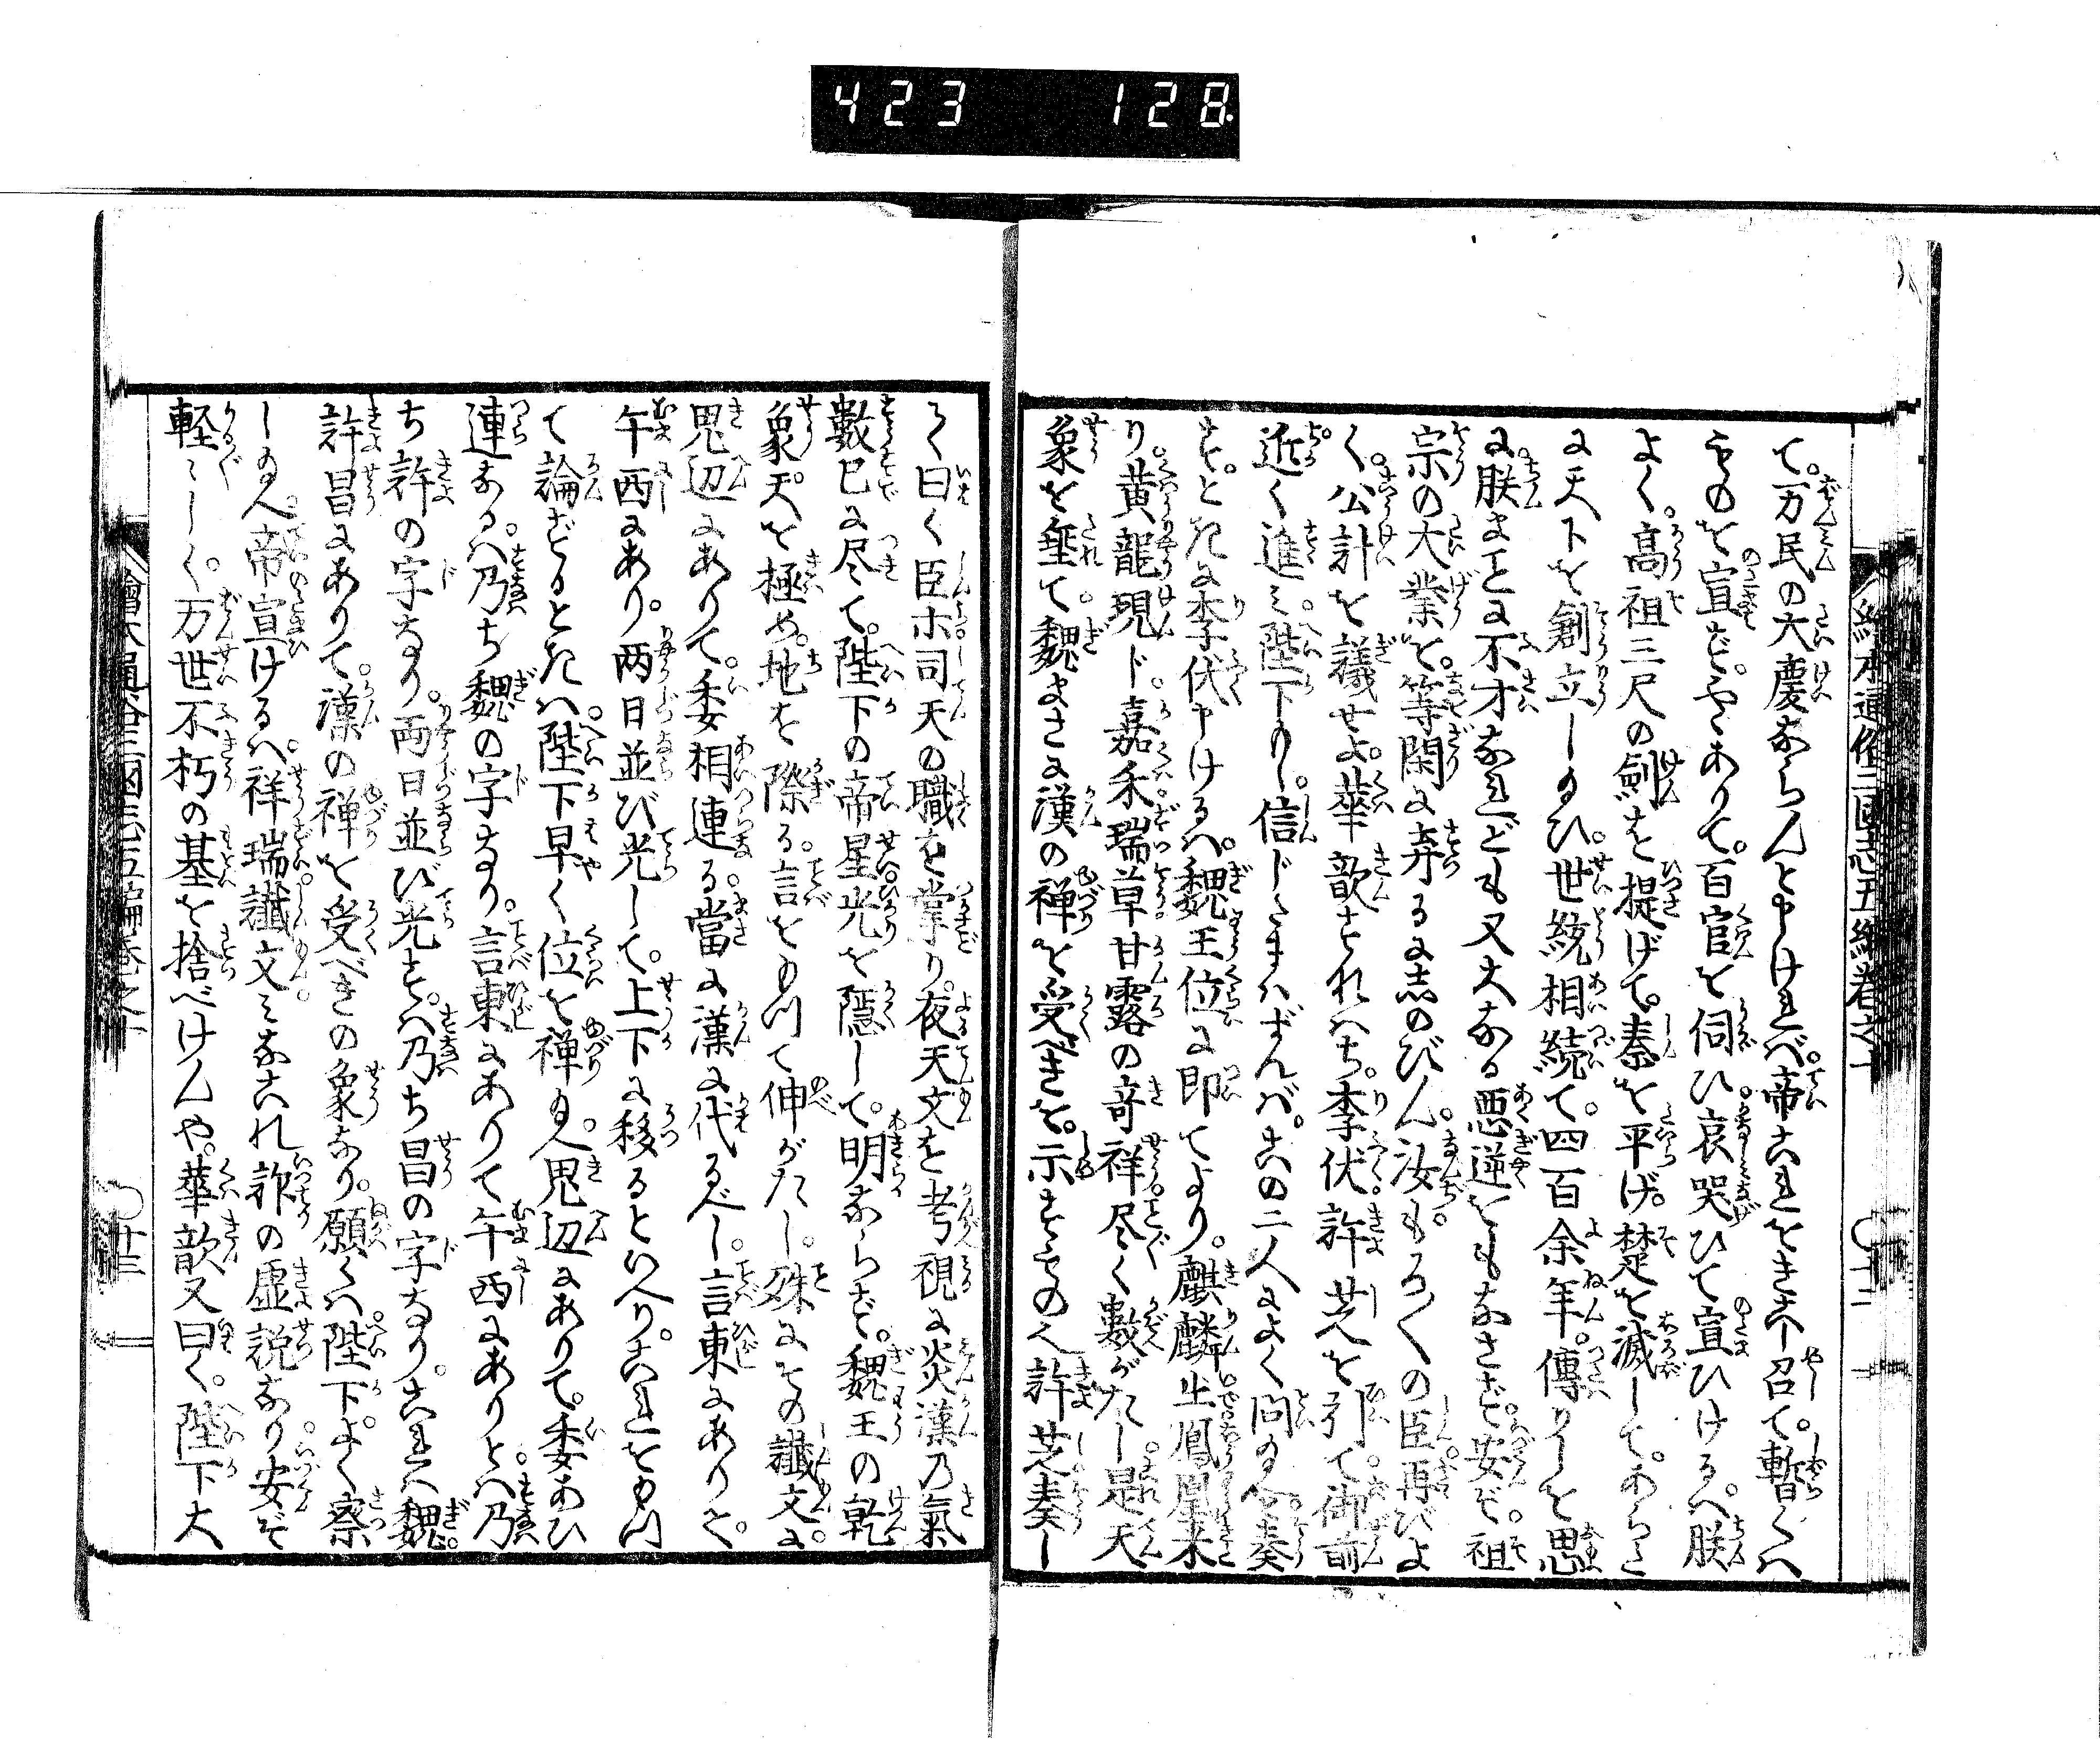 423 128
て。万民の大慶ならんと申ければ。帝これをきこし召て。暫くは
ものを宣ず。やゝありて。百官を伺ひ。哀哭ひて宣ひけるは。朕
よく。高祖三尺の劍を提げて。秦を平げ。楚を滅して。あらた
に天下を創立し給ひ。世統相続て。四百余年。傳りしを思
に。朕まことに不才なれども又大なる悪逆をもなさず。安ぞ。祖
宗の大業を。等閑に弃るに忍のびん。汝もろ〳〵の臣。再びよ
く。公計を議せよ。華歆すなはち。李伏。許芝を引て。御前
近く進み。陛下もし。信じたまはずんば。この二人によく問給へ。奏
す。ときに李伏申けるは。魏王位に即てより。麒麟出鳳凰来
り。黄龍現じ。嘉禾瑞草甘露の竒祥尽く數がたし。是天
象を垂て。魏まさに漢の禅を受べきを。示すものへ許芝奏し
て曰く臣ホ司天の職を掌り。夜天文を考視に炎漢乃氣
數已に尽て。陛下の帝星光を隠して。明ならず。魏王の乾
象。天を極め。地を際る。言をもつて伸がたし。殊にその讖文に。
鬼辺にありて。委相連る。當に漢に代るべし。言東にありて。
午西にあり。両日並び光して。上下に移るといへり。これをもつ
て論ずるときは。陛下早く位を禅給へ。鬼辺にありて。委あひ
連なるは。乃ち魏の字なり。言東にありて午西にありとは。乃
ち許の字なり。両日並び光すは。乃ち昌の字なり。これは魏。
許昌にありて。漢の禅を受べきの象なり。願くは陛下よく察
し給へ。帝宣けるは。祥瑞讖文。みなこれ詐の虚説なり。安ぞ
軽〻しく。万世不朽の基を捨べけんや。華歆又曰く。陛下大